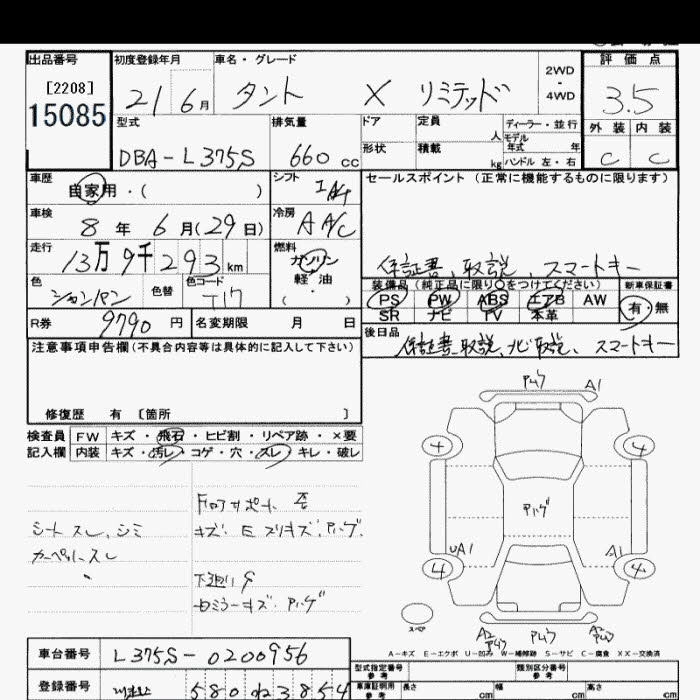 出品番号 初度登録年月 車名・グレード 評価点
[2208] 2WD
15085 21 6月 タント X リミテッド ・ 3.5
4WD
型式 排気量 ドア 定員 人 ディーラー・並行 外装 内装
モデル年式 年
DBA-L375S 660 cc 形状 積載 kg ハンドル 左・右 C C
車歴 シフト セールスポイント(正常に機能するものに限ります)
自家用・( ) IAT
車検 冷房
8年 6月(29日) AAC
走行 燃料
13万9千293 km ガソリン
保証書、取説、スマートキー
軽・油
色 色替 色コード ( ) 装備品(純正品に限り○をつけてください) 新車保証書
シャンパン T17 PS PW ABS エアB AW 有・無
SR ナビ TV 本革
R券 9790円 名変期限 月 日 後日品
保証書、取説、ナビ取説、スマートキー
注意事項申告欄(不具合内容等は具体的に記入して下さい)
修復歴 有 [箇所 ]
検査員 FW キズ・飛石・ヒビ割・リペア跡・×要
記入欄 内装 キズ・汚レ・コゲ・穴・スレ・キレ・破レ
シート スレ、シミ
カーペットスレ
キズ、E スリキズ、ハゲ
下廻り サ
キズ ハゲ
A1
4 4
UA1 A1
4 4
スペア
A2 A2
A-キズ E-エクボ U-凹み W-補修跡 S-サビ C-腐食 XX-交換済
車台番号 L375S-0200956
型式指定番号 参考 類別区分番号 参考
登録番号 580 3854
車庫証明用 参考 長さ cm 幅 cm 高さ cm